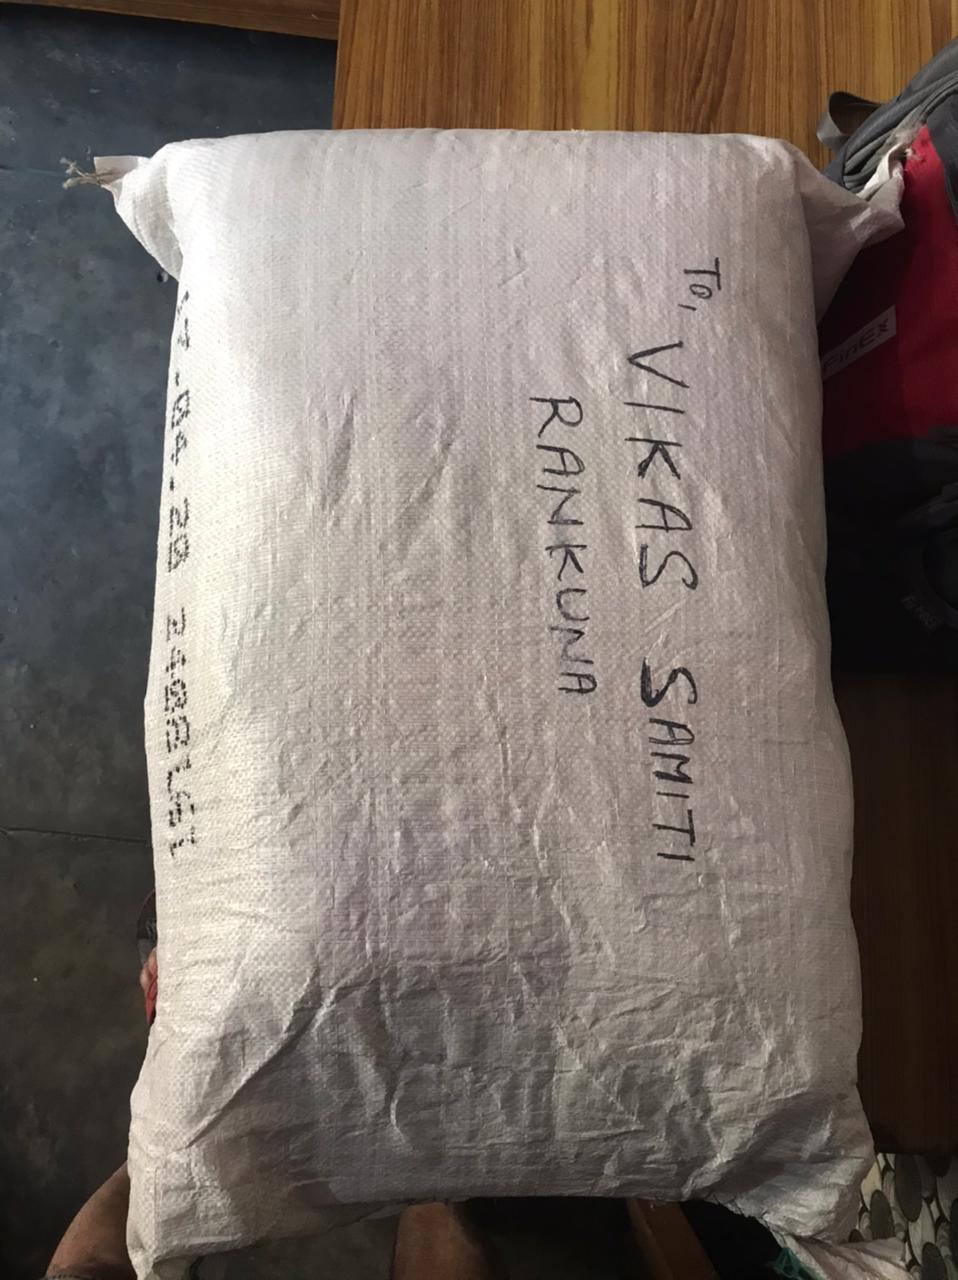 To,
VIKAS SAMITI
RANKUNA
17.04.20 2408161